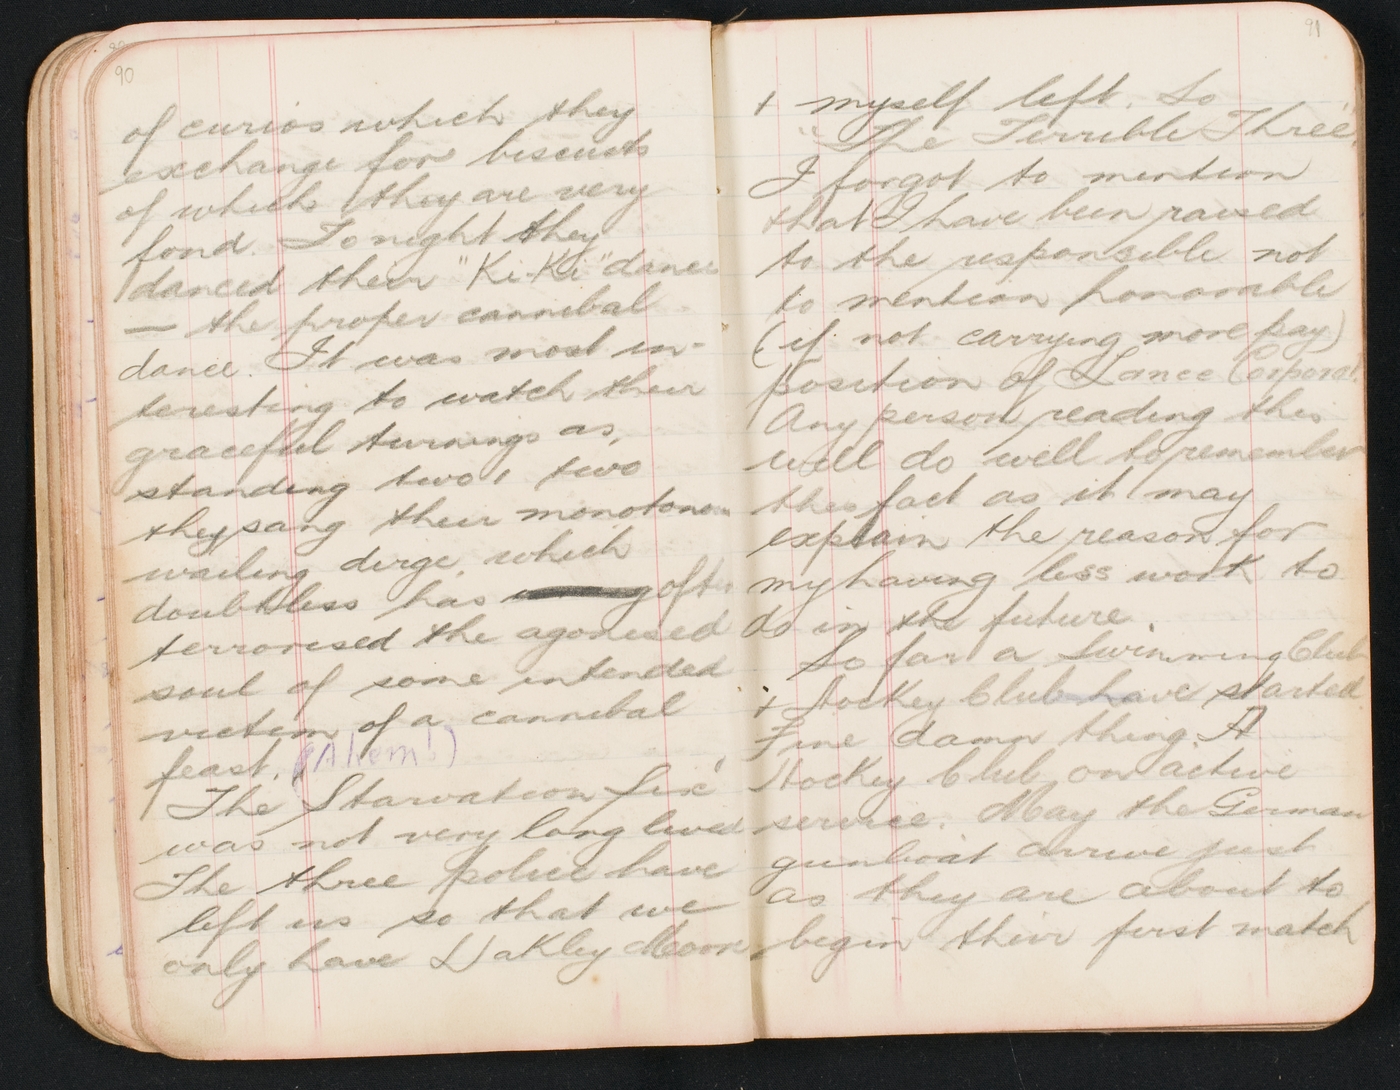 90
of curios which they
exchange for biscuits
of which they are very
fond. Tonight they
danced their "Ki-Ki" dance
— the proper cannibal
dance. It was most in-
teresting to watch their
graceful turnings as,
standing two & two
they sang their monotonous
wailing dirge, which
doubtless has oft
terrorised the agonised
soul of some intended
victim of a cannibal
feast. (Ahem!)
The Starvation Six'
was not very long lived
The three police have
left us so that we
only have Oakley Moore
91
+ myself left. So
"The Terrible Three"
I forgot to mention
that I have been raised
to the responsible not
to mention honorable
(if not carrying more pay)
position of Lance Corporal.
Any person reading this
will do well to remember
this fact as it may
explain the reason for
my having less work to
do in the future.
So far a Swimming Club
+ Hockey Club have started
Fine damn thing. A
Hockey Club on active
service. May the German
gunboat arrive just
as they are about to
begin their first match